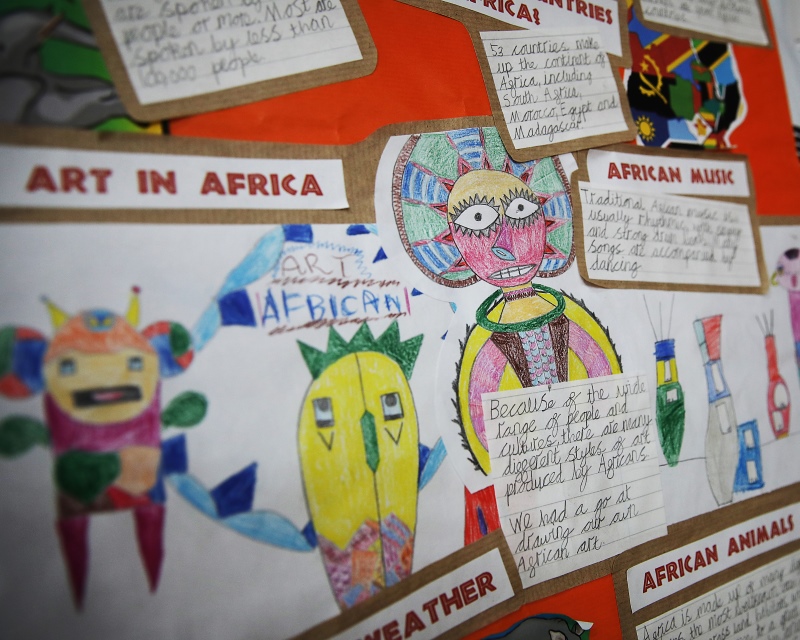 are spoken by
people or more. Most are
spoken by less than
100,000 people.
COUNTRIES
AFRICA?
53 countries make
up the continent of
Africa, including
South Africa,
Morocco, Egypt and
Madagascar.
ART IN AFRICA
AFRICAN MUSIC
Traditional African music is
usually rhythmic, with
and strong drum
songs are accompanied by
dancing.
ART
AFRICAN
Because of the wide
range of people and
cultures there are many
different styles of art
produced by Africans.
We had a go at
drawing our own
African art.
WEATHER
AFRICAN ANIMALS
Africa is made up of many
the most
and
to a